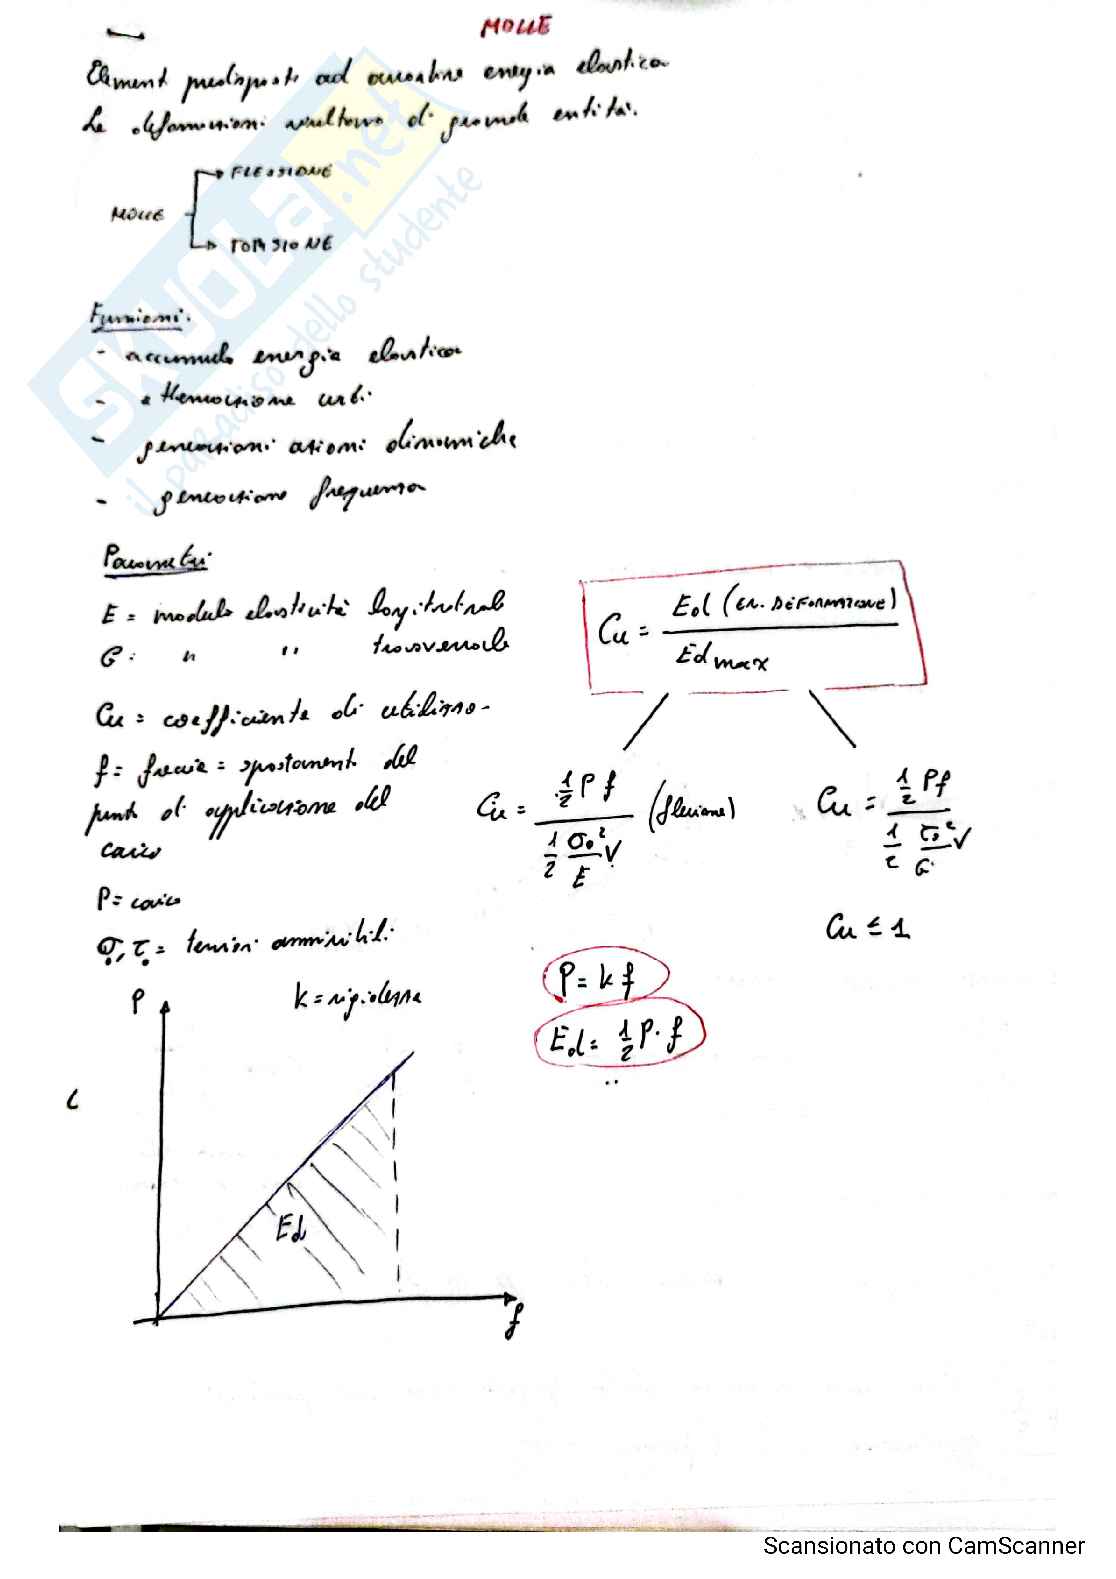 MOLLE
Elementi predisposti ad accumulare energia elastica
Le deformazioni risultano di grande entità.
MOLLE
FLESSIONE
TORSIONE
Funzioni:
- accumulo energia elastica
- attenuazione urti
- generazioni azioni dinamiche
- generazione frequenza
Parametri
E = modulo elasticità longitudinale
G = " " trasversale
Cu = coefficiente di utilizzo
f = freccia = spostamento del
punto di applicazione del
carico
P = carico
σ₀, τ₀ = tensioni ammissibili
k = rigidezza
Cu = Ed (EN. DEFORMAZIONE) / Ed max
Cu = ½ P f / ½ σ₀²/E V (flessione)
Cu = ½ P f / ½ τ₀²/G V
Cu ≤ 1
P = k f
Ed = ½ P · f
P
Ed
f
SKUOLA.net
il paradiso dello studente
Scansionato con CamScanner